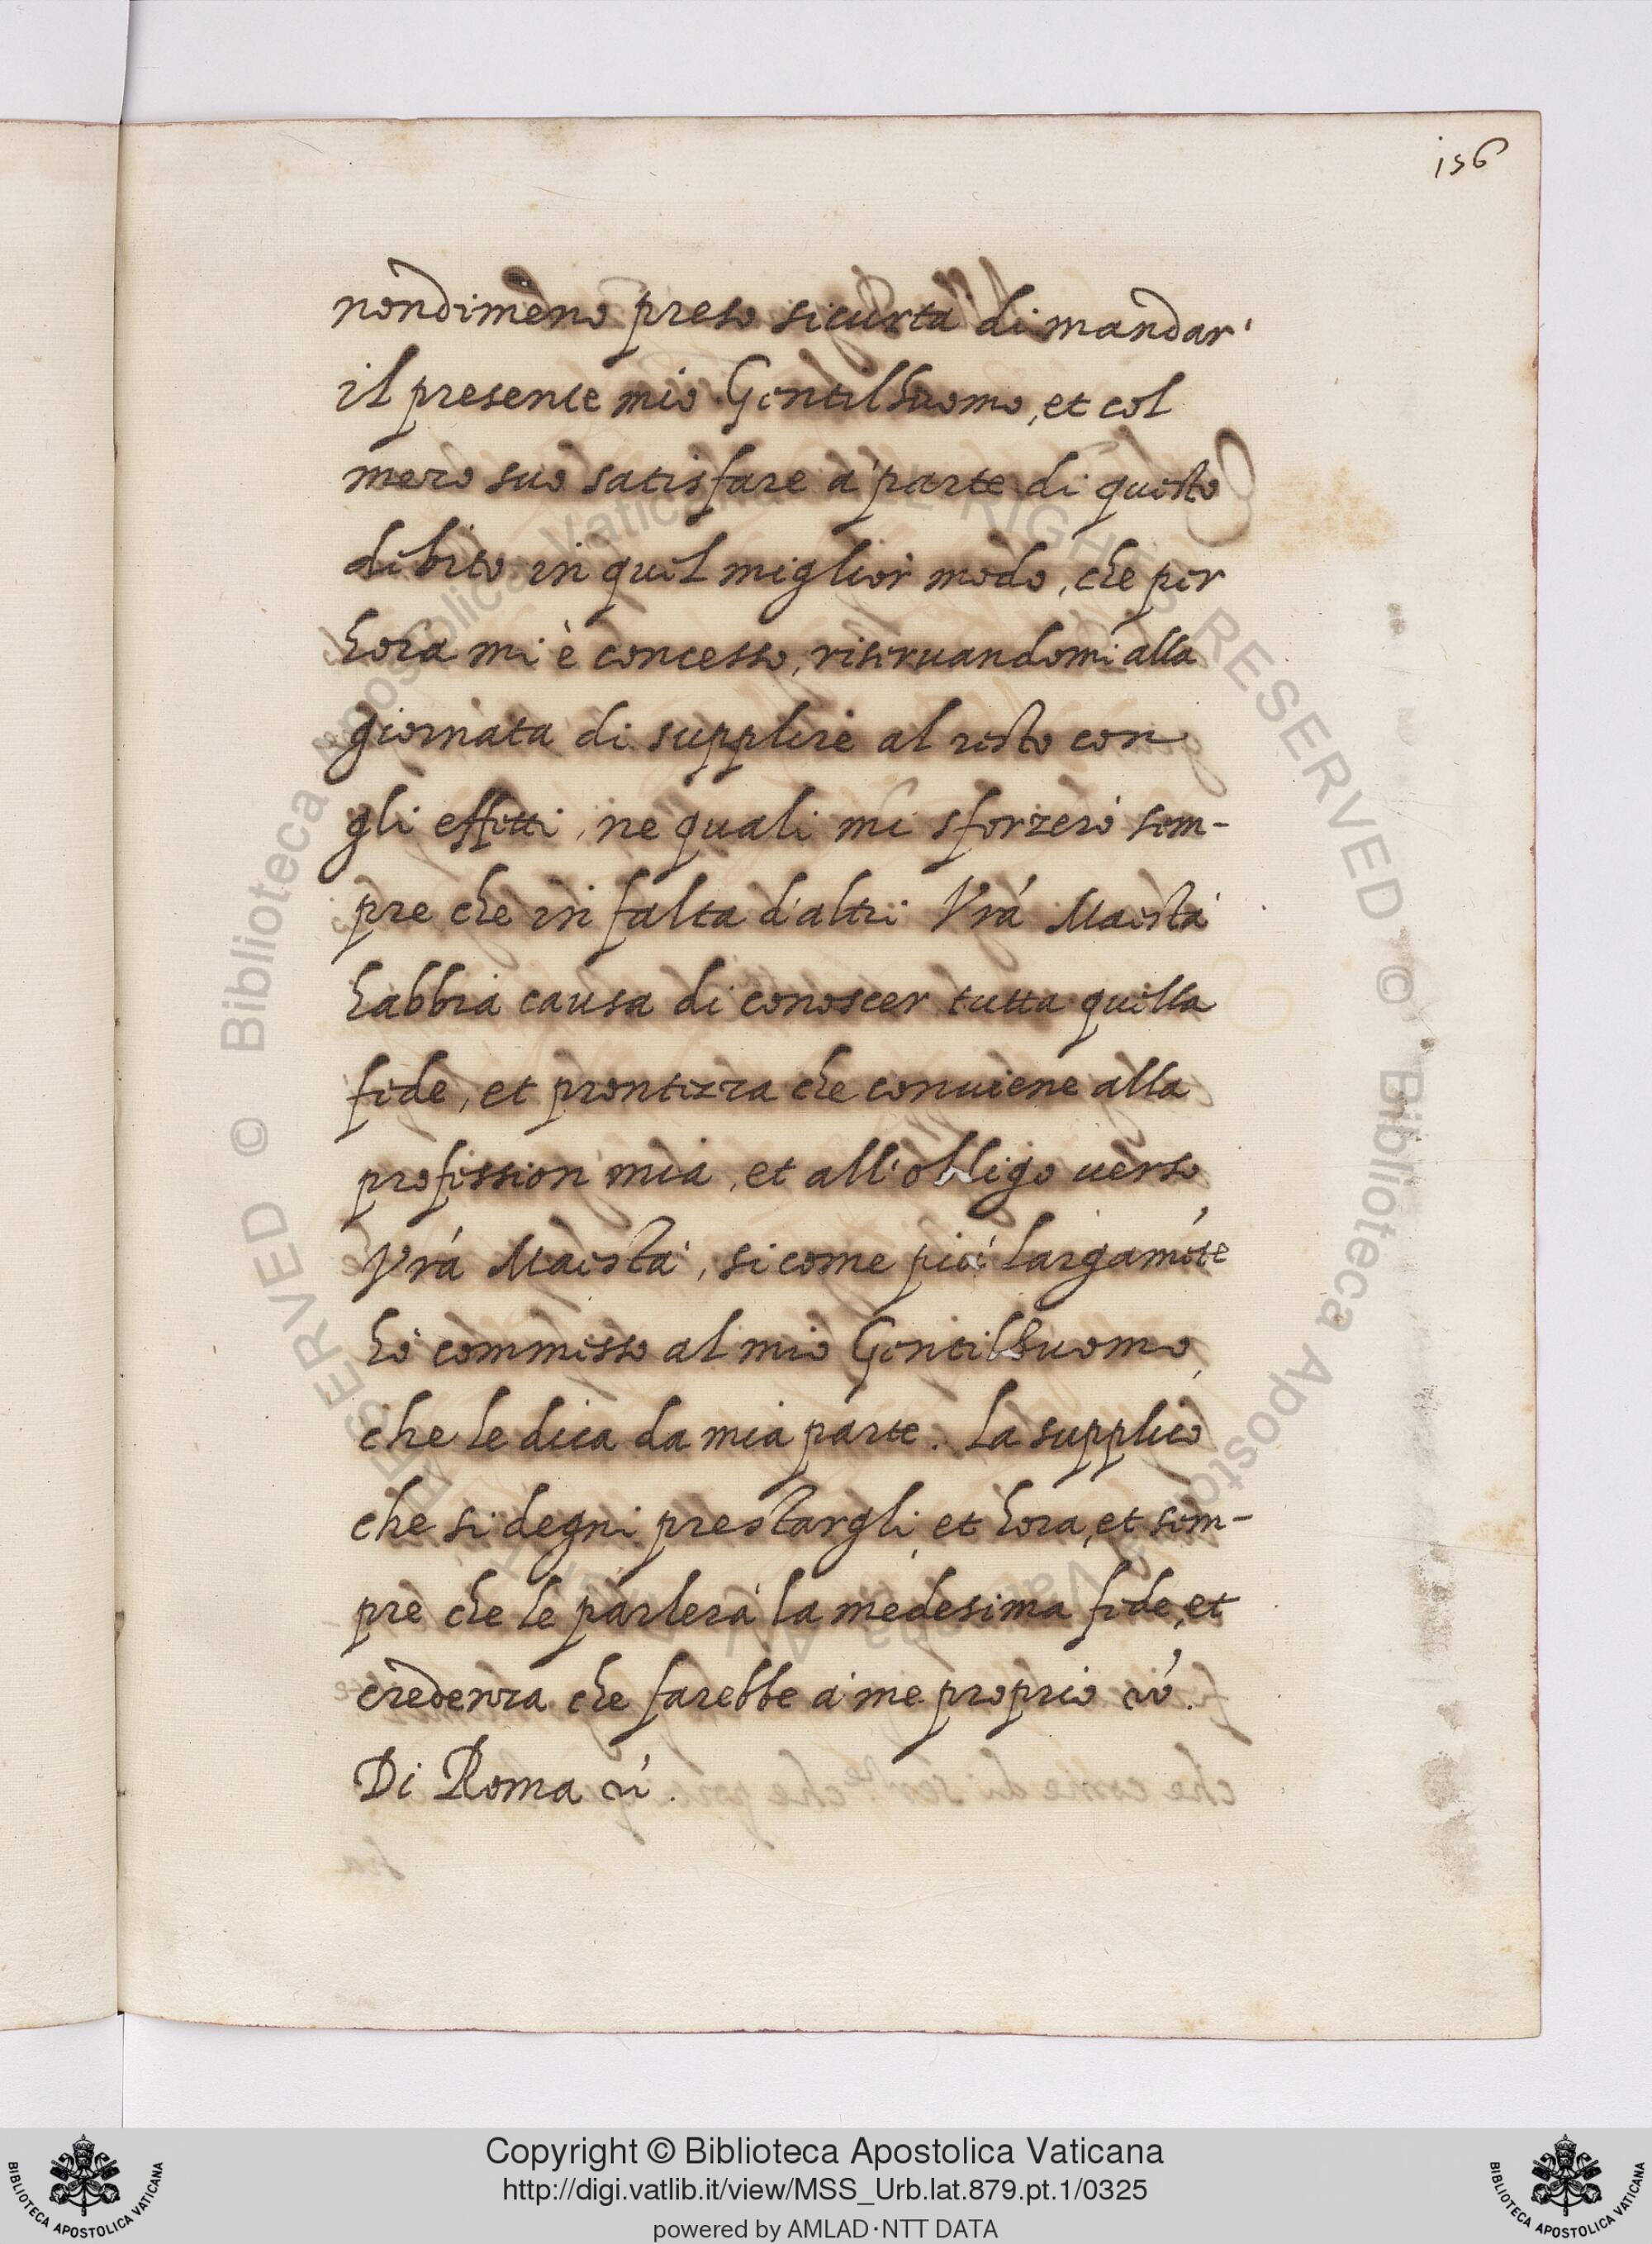 156
nondimeno preso sicurtà di mandar'
il presente mio Gentilhuomo, et col
mezo suo satisfare à parte di questo
debito in quel miglior modo, che per
hora mi è concesso, riseruandomi alla
giornata di supplire al resto con
gli effetti, ne quali mi sforzerò sem-
pre che in falta d'altri Vrá Maestà
habbia causa di conoscer tutta quella
fede, et prontezza che conuiene alla
profession' mia, et all'obligo uerso
Vrá Maestà, si come più largaméte
hò commesso al mio Gentilhuomo,
che le dica da mia parte. La supplico
che si degni prestargli, et hora, et sem-
pre che le parlerà la medesima fede, et
credenza che farebbe à me proprio &.
Di Roma &.
Copyright © Biblioteca Apostolica Vaticana
http://digi.vatlib.it/view/MSS_Urb.lat.879.pt.1/0325
powered by AMLAD·NTT DATA
BIBLIOTECA APOSTOLICA VATICANA
BIBLIOTECA APOSTOLICA VATICANA